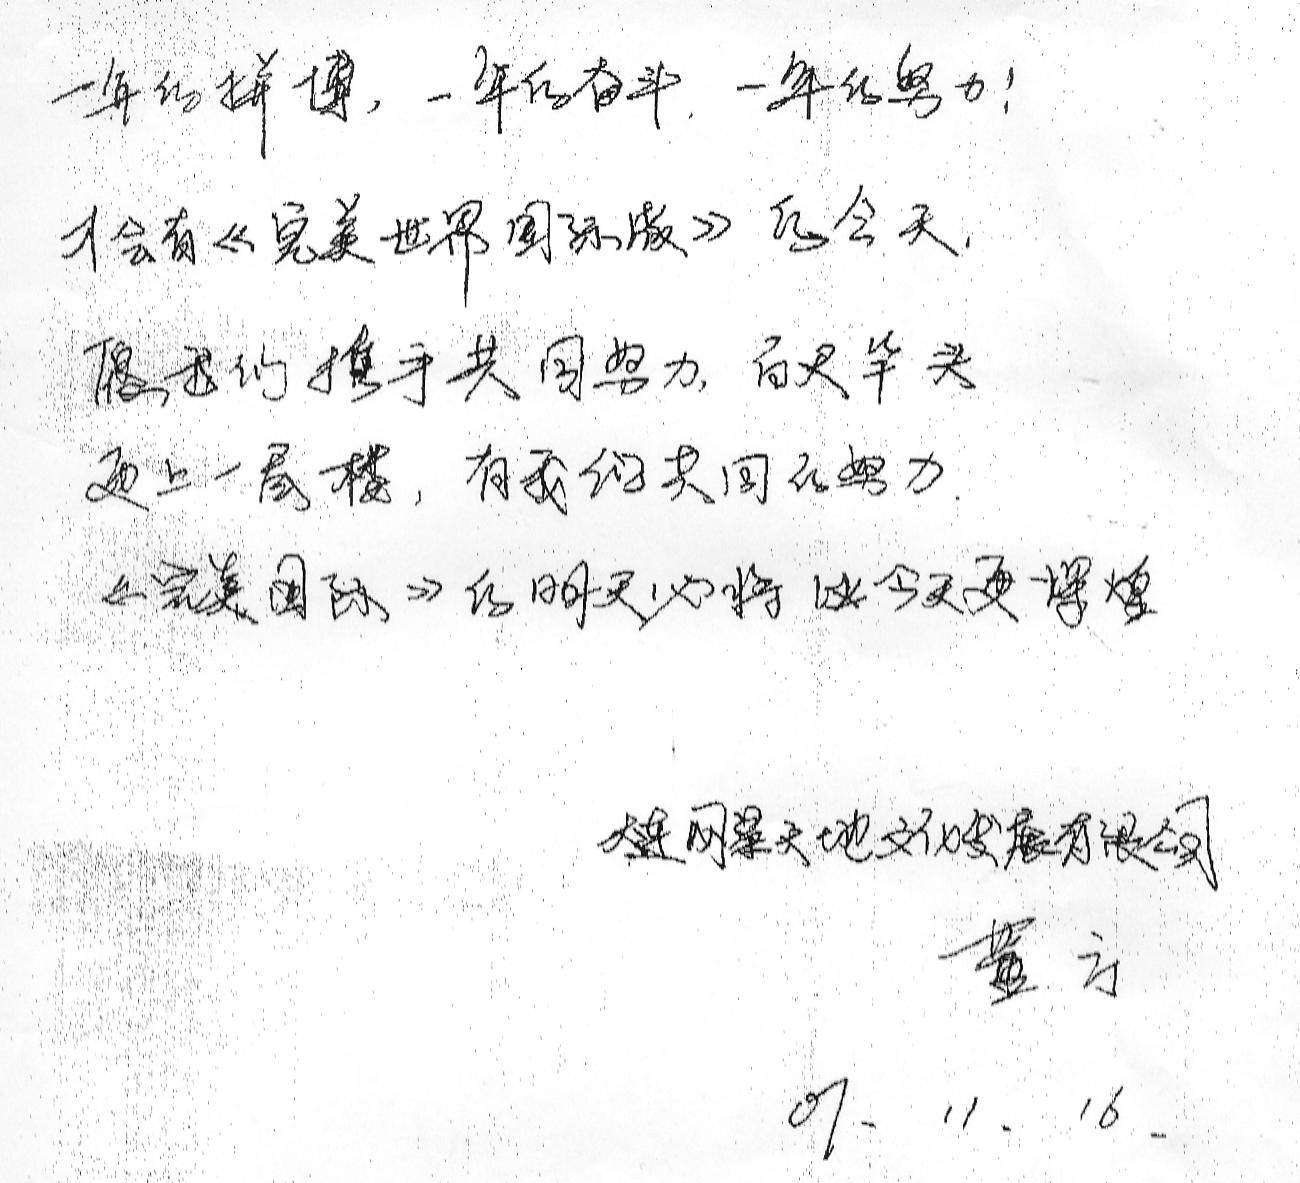 一年的拼博，一年的奋斗，一年的努力！
才会有《完美世界国际版》的今天，
愿我们携手共同努力，百尺竿头
更上一层楼，有我们共同的努力
《完美国际》的明天必将比今天更辉煌
大连网星天地文化发展有限公司
董方
07.11.16.